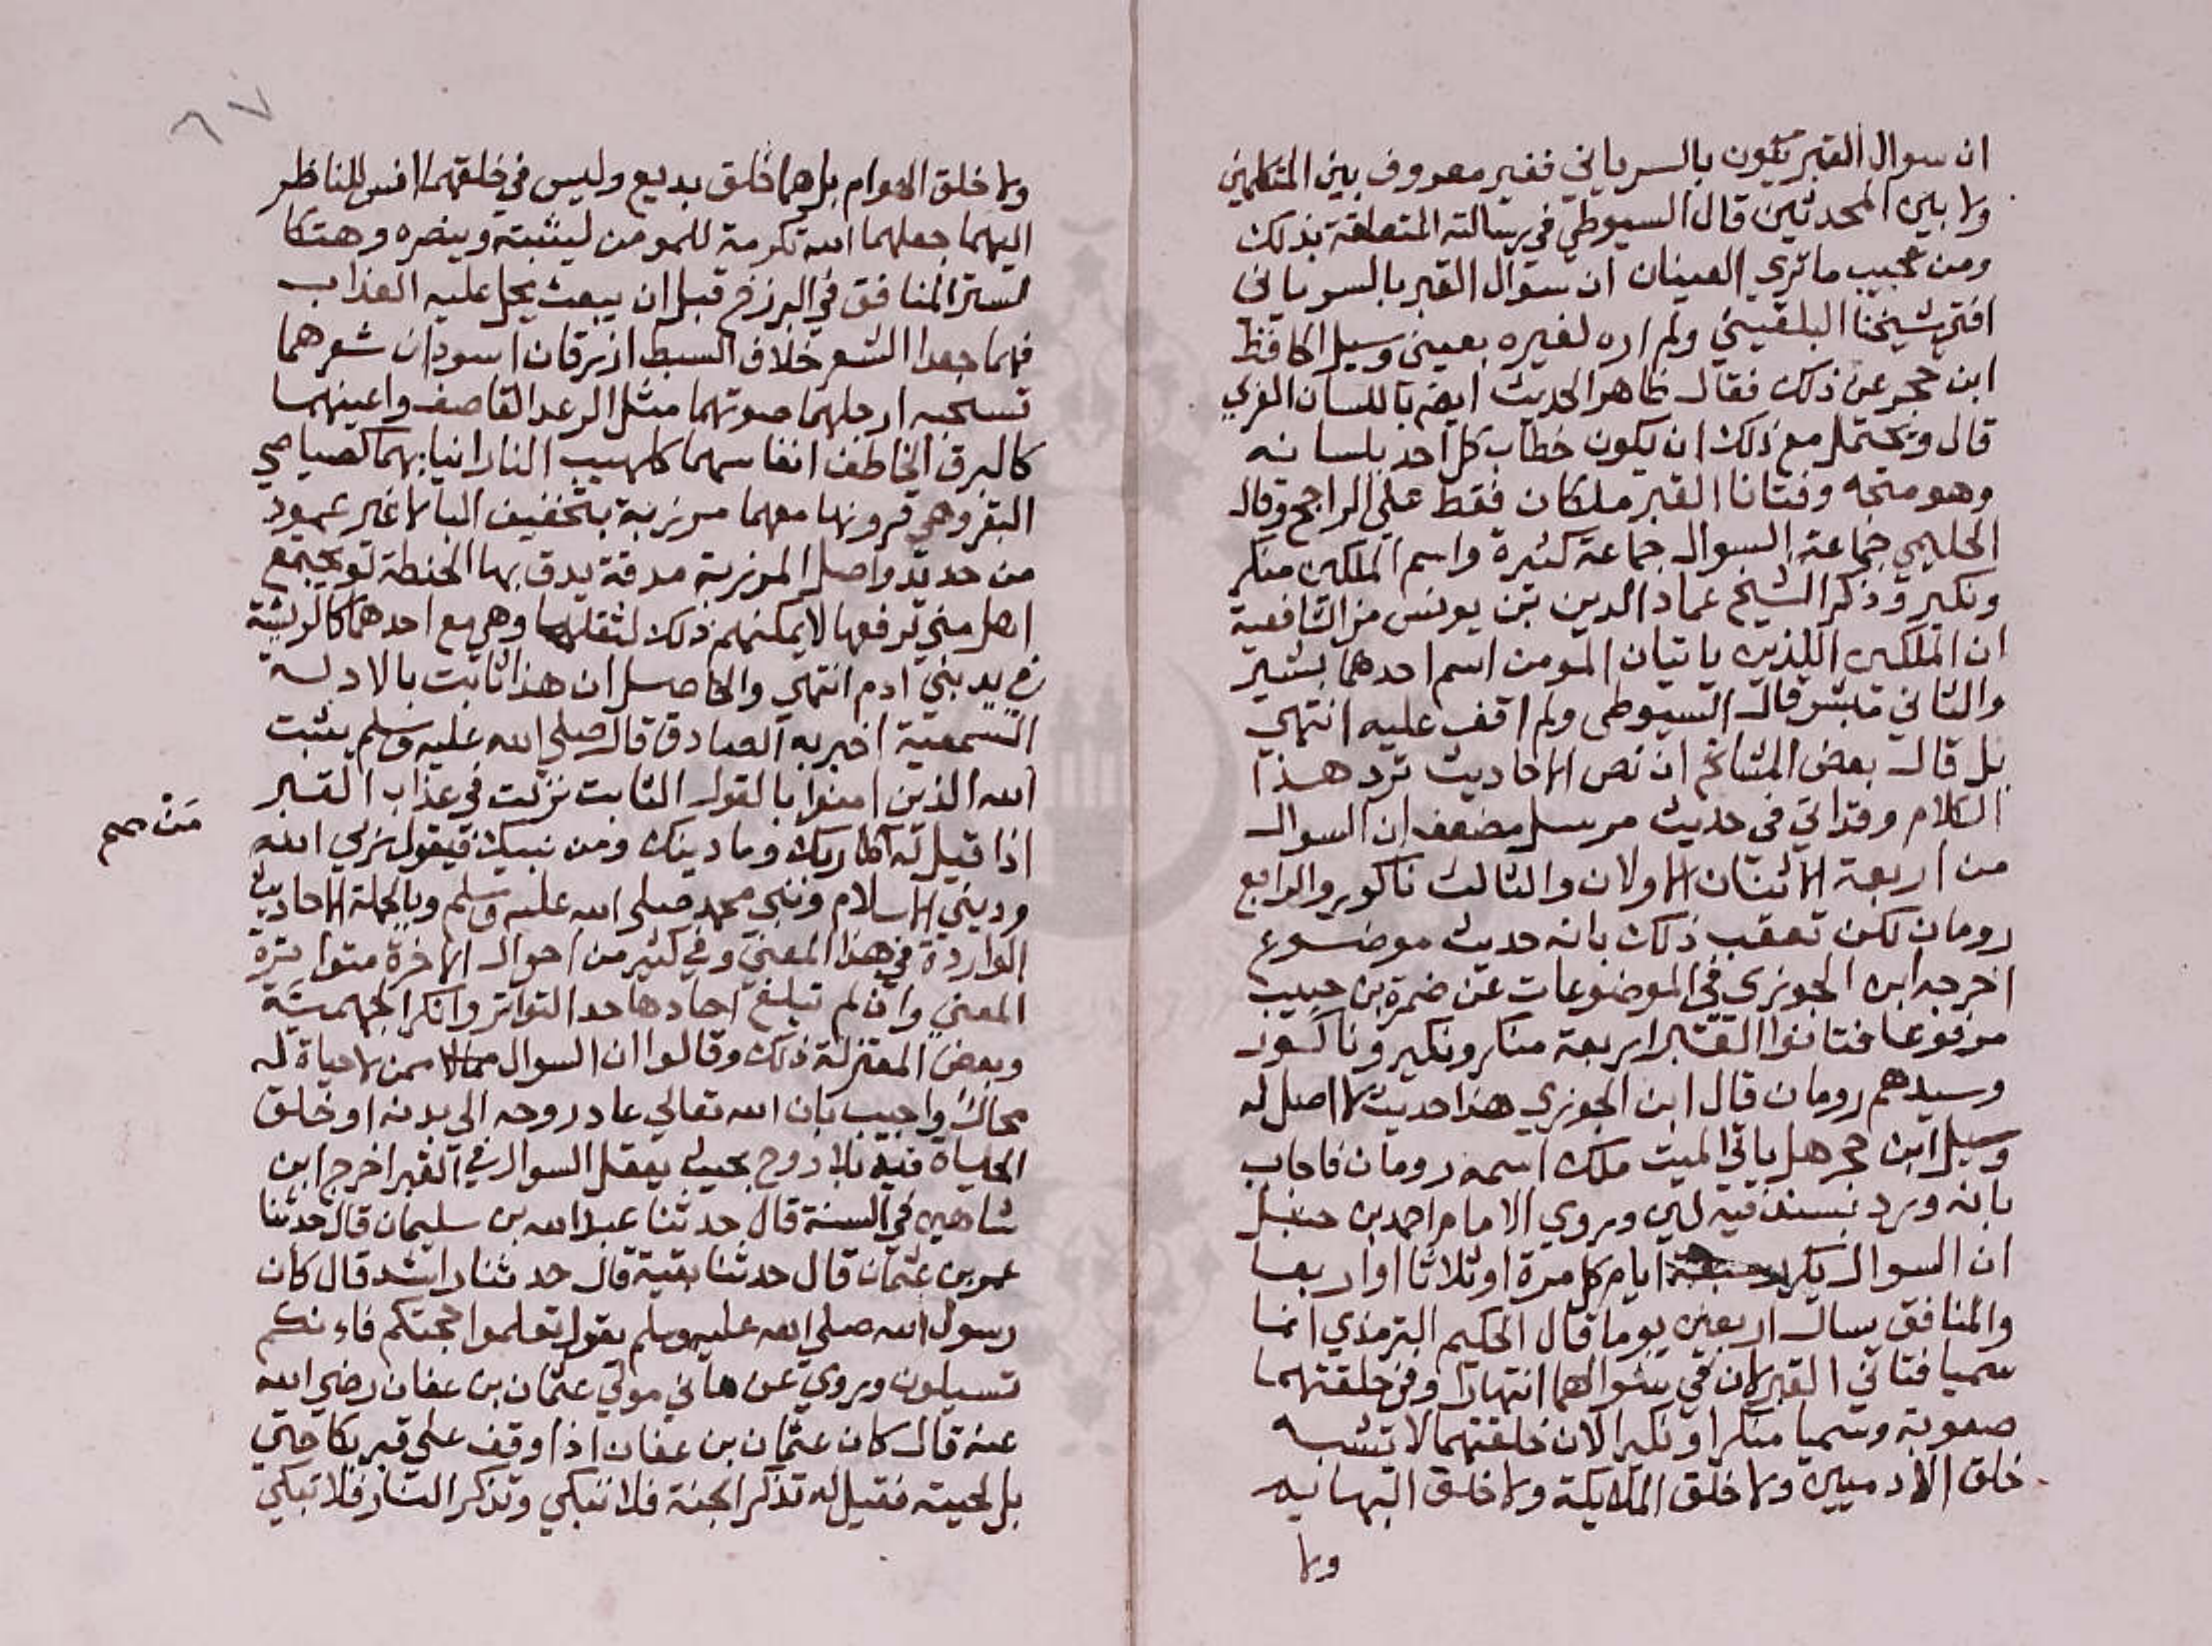 ان سوال القبر يكون بالسرياني فغير معروف بين المتكلمين
ولا بين المحدثين قال السيوطي في رسالته المتعلقة بذلك
ومن عجيب ما تري العينان ان سوال القبر بالسرياني
افتي شيخنا البلقيني ولم اره لغيره بعيني وسيل الحافظ
ابن حجر عن ذلك فقال ظاهر الحديث ايضه باللسان العربي
قال ويحتمل مع ذلك ان يكون خطاب كل احد بلسانه
وهو متجه وفتانا القبر ملكان فقط علي الراجح وقال
الحليمي جماعة السوال جماعة كثيرة واسم الملكين منكر
ونكير وذكر الشيخ عماد الدين بن يونس من الشافعية
ان الملكين اللذين ياتيان المومن اسم احدهما بشير
والثاني مبشر قال السيوطي ولم اقف عليه انتهي
بل قال بعض المشائخ ان نص الاحاديث ترد هذا
الكلام وقد اتي في حديث مرسل مضعف ان السوال
من اربعة الاثنان الاولان والثالث ناكور والرابع
رومان لكن تعقب ذلك بانه حديث موضوع
اخرجه ابن الجوزي في الموضوعات عن ضمرة بن حبيب
مرفوعا فتانوا القبر اربعة منكر ونكير وناكور
وسيدهم رومان قال ابن الجوزي هذا حديث لا اصل له
وسيل ابن حجر هل ياتي الميت ملك اسمه رومان فاجاب
بانه ورد بسند فيه لين وروي الامام احمد بن حنبل
ان السوال يكرر سبعة ايام كل مرة او ثلاثا او اربعا
والمنافق يسال اربعين يوما قال الحكيم الترمذي انما
سميا فتاني القبر لان في سوالهما انتهارا وفي خلقتهما
صعوبة وسميا منكرا ونكيرا لان خلقتهما لا تشبه
خلق الادميين ولا خلق الملايكة ولا خلق البهايم
ولا
٦٧
ولا خلق الهوام بل هما خلق بديع وليس في خلقهما انس للناظر
اليهما جعلهما الله تكرمة للمومن ليثبته وينصره وهتكا
لستر المنافق في البرزخ قبل ان يبعث يحل عليه العذاب
فهما جعدا الشعر خلاف السبط ازرقان اسودان شعرهما
تسحبه ارجلهما صوتهما مثل الرعد القاصف واعينهما
كالبرق الخاطف انفاسهما كلهيب النار انيابهما كصياصي
البقر وهي قرونها معهما مرزبة بتخفيف البا لا غير عمود
من حديد واصل المرزبة مدقة يدق بها الحنطة لو يجتمع
اهل مني لرفعها لا يمكنهم ذلك لثقلها وهي مع احدهما كالريشة
في يد بني ادم انتهي والحاصل ان هذا ثابت بالادلة
السمعية اخبر به الصادق قال صلي الله عليه وسلم يثبت
الله الذين امنوا بالقول الثابت نزلت في عذاب القبر
اذا قيل له ربك وما دينك ومن نبيك فيقول ربي الله
مَنْ صح
وديني الاسلام ونبي محمد صلي الله عليه وسلم وبالجملة الاحاديث
الواردة في هذا المعني وفي كثير من احوال الاخرة متواترة
المعني وان لم تبلغ احادها حد التواتر وانكر الجهمية
وبعض المعتزلة ذلك وقالوا ان السوال ممن لا حياة له
محال واجيب بان الله تعالي عاد روحه الي بدنه او خلق
الحياة فيه بلا روح بحيث يعقل السوال في القبر اخرج ابن
شاهين في السنة قال حدثنا عبد الله بن سليمان قال حدثنا
عمرو بن عثمان قال حدثنا بقية قال حدثنا راشد قال كان
رسول الله صلي الله عليه وسلم يقول تعلموا حجتكم فاءنكم
تسيلون وروي عن هاني مولي عثمان بن عفان رضي الله
عنه قال كان عثمان بن عفان اذا وقف علي قبر بكا حتي
بل لحيته فقيل له تذكر الجنة فلا تبكي وتذكر النار فلا تبكي